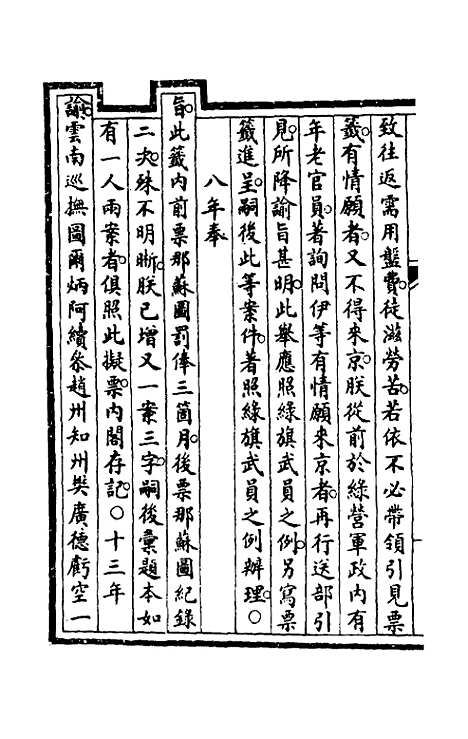 致往返需用盤費徒滋勞苦若依不必帶領引見票
籤有情願者又不得來京朕從前於綠營軍政內有
年老官員著詢問伊等有情願來京者再行送部引
見所降諭旨甚明此舉應照綠旗武員之例另寫票
籤進呈嗣後此等案件著照綠旗武員之例辦理○
八年奉
旨此籤內前票那蘇圖罰俸三箇月後票那蘇圖紀錄
二次殊不明晰朕已增又一案三字嗣後彙題本如
有一人兩案者俱照此擬票內閣存記○十三年
諭雲南巡撫圖爾炳阿續叅趙州知州樊廣德虧空一